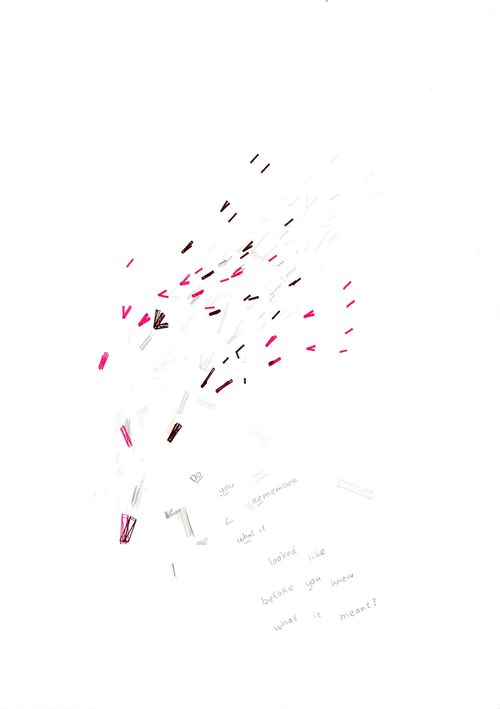 Do
you
remember
what it
looked like
before you knew
what it meant?